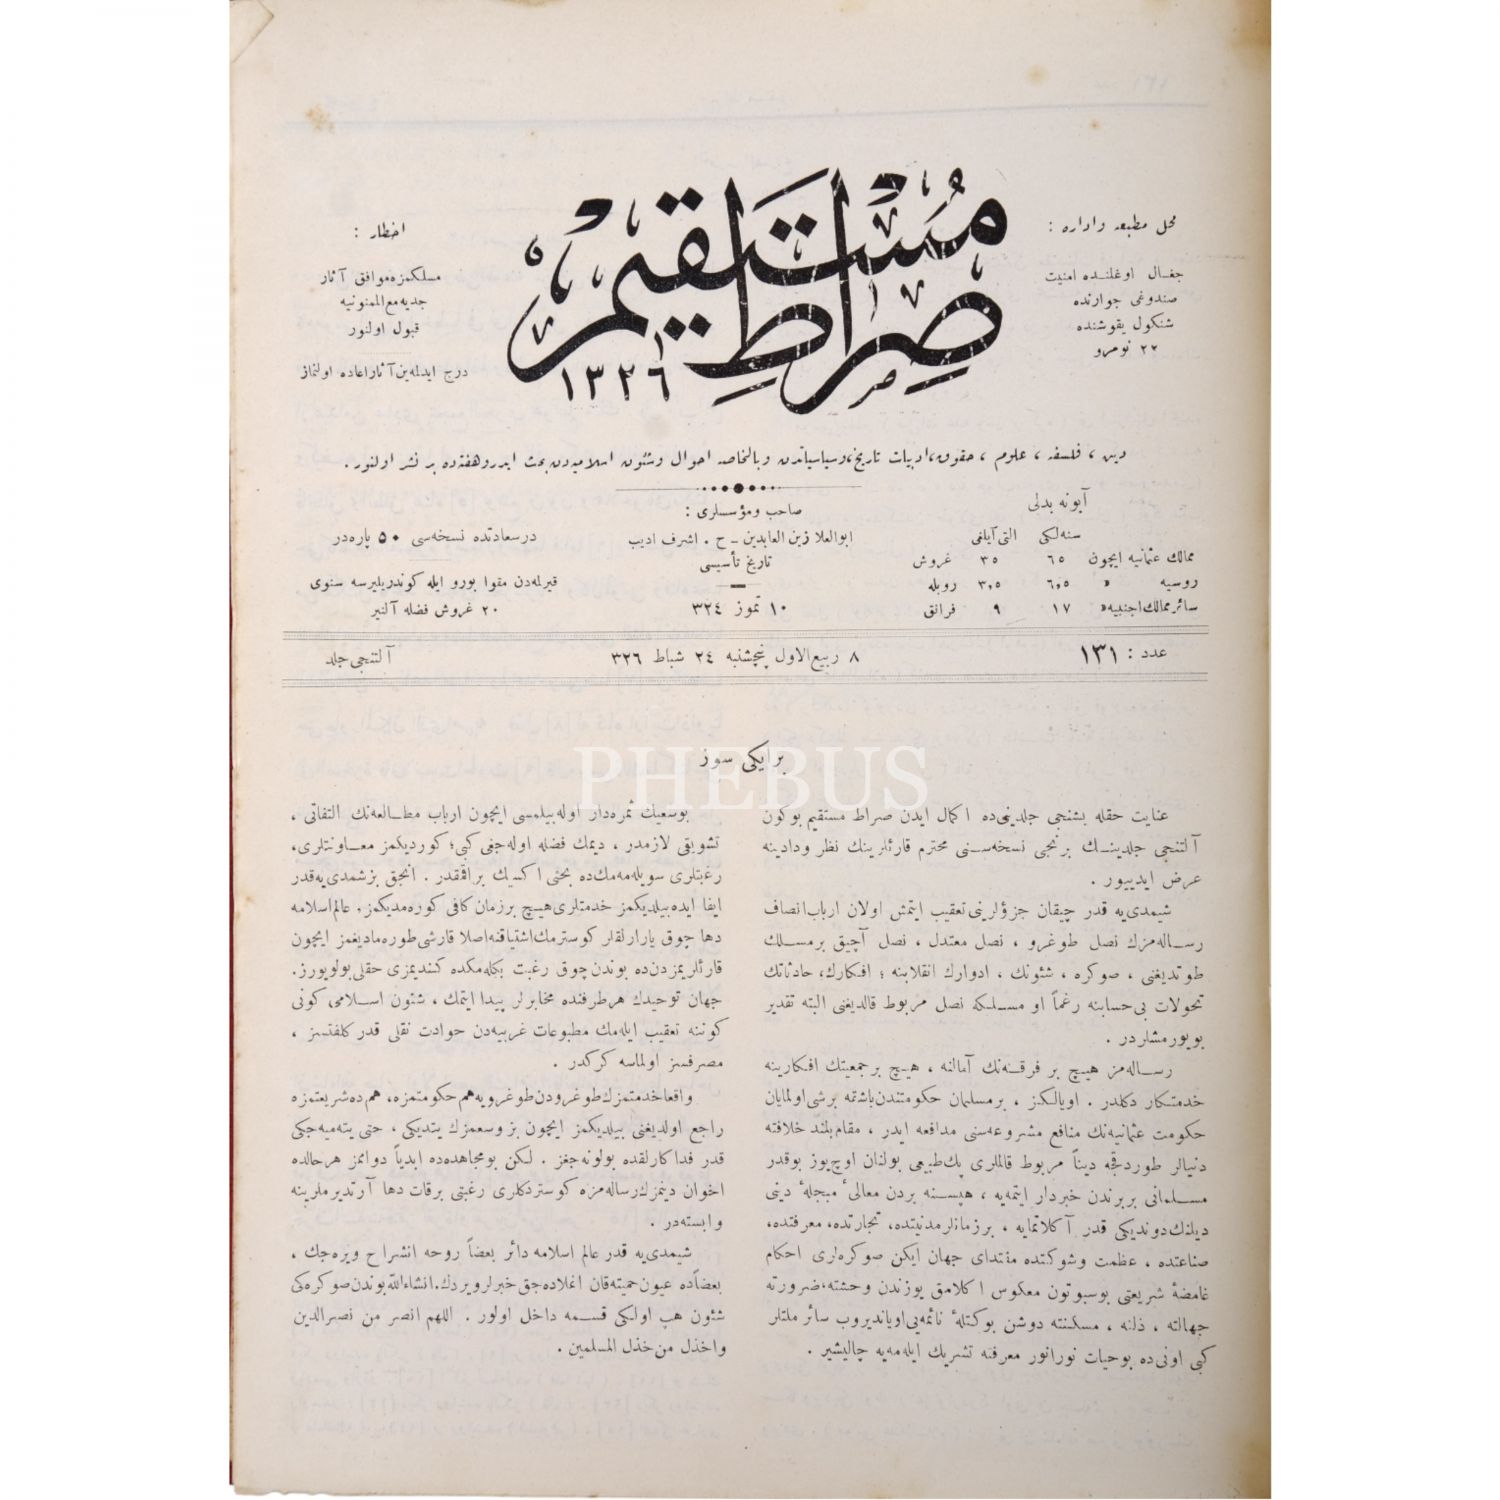 صراط مستقيم
١٣٢٦
محل مطبعه واداره :
جغال اوغلنده امنيت
صندوغى جوارنده
شنكول يقوشنده
٢٢ نومرو
اخطار :
مسلكمزه موافق آثار
جديه مع الممنونيه
قبول اولنور
درج ايدلمه‌ين آثار اعاده اولنماز
دين ، فلسفه ، علوم ، حقوق، ادبيات تاريخ، وسياسياتدن وبالخاصه احوال وشئون اسلاميه‌دن بحث ايدر وهفته‌ده بر نشر اولنور .
آبونه بدلى
سنه‌لكى التى آيلغى
ممالك عثمانيه ايچون ٦٥ ٣٥ غروش
روسيه » ٦,٥ ٣,٥ روبله
سائر ممالك اجنبيه » ١٧ ٩ فرانق
صاحب ومؤسسلرى :
ابوالعلا زين العابدين ـ ح . اشرف اديب
تاريخ تأسيسى
١٠ تموز ٣٢٤
درسعادتده نسخه‌سى ٥٠ پاره‌در
قيرلمه‌دن مقوا بورو ايله كوندريليرسه سنوى
٢٠ غروش فضله آلنير
عدد : ١٣١
٨ ربيع الاول پنچشنبه ٢٤ شباط ٣٢٦
آلتنجى جلد
PHEBUS
بر ايكى سوز
عنايت حقله بشنجى جلدينى‌ده اكمال ايدن صراط مستقيم بوكون
آلتنجى جلدينك برنجى نسخه‌سنى محترم قارئلرينك نظر ودادينه
عرض ايدييور .
شيمدى‌يه قدر چيقان جزؤلرينى تعقيب ايتمش اولان ارباب انصاف
رساله‌مزك نصل طوغرو ، نصل معتدل ، نصل آچيق برمسلك
طوتديغنى ، صوكره ، شئونك ، ادوارك انقلابنه ؛ افكارك، حادثاتك
تحولات بى‌حسابنه رغماً او مسلكه نصل مربوط قالديغنى البته تقدير
بويورمشلردر .
رساله‌مز هيچ بر فرقه‌نك آمالنه ، هيچ برجمعيتك افكارينه
خدمتكار دكلدر . اويالكز ، برمسلمان حكومتندن باشقه برشى اولمايان
حكومت عثمانيه‌نك منافع مشروعه‌سنى مدافعه ايدر ، مقام بلند خلافته
دنيالر طوردقجه ديناً مربوط قالملرى پك طبيعى بولنان اوچ يوز بوقدر
مسلمانى بربرندن خبردار ايتمه‌يه ، هپسنه بردن معالئ مبجلهٔ دينى
ديلنك دونديكى قدر آكلاتمايه ، برزمانلر مدنيتده، تجارتده، معرفتده،
صناعتده ، عظمت وشوكتده مقتداى جهان ايكن صوكره‌لرى احكام
غامضهٔ شريعتى بوسبوتون معكوس اكلامق يوزندن وحشته، ضرورته
جهالته ، ذلته ، مسكنته دوشن بوكتلهٔ نائمه‌يى اويانديروب سائر ملتلر
كبى اونى‌ده بوحيات نورانور معرفته تشريك ايله‌مه‌يه چاليشير .
بوسعيك ثمره‌دار اوله‌بيلمسى ايچون ارباب مطالعه‌نك التفاتى ،
تشويقى لازمدر ، ديمك فضله اوله‌جغى كبى؛ كورديكمز معاونتلرى،
رغبتلرى سويله‌مه‌مك‌ده بحثى اكسيك براقمقدر . انجق بزشمدى‌يه قدر
ايفا ايده‌بيلديكمز خدمتلرى هيچ برزمان كافى كوره‌مديكمز، عالم اسلامه
دها چوق يارارلقلر كوسترمك اشتياقنه اصلا قارشى طوره‌ماديغمز ايچون
قارئلريمزدن‌ده بوندن چوق رغبت بكله‌مكده كنديمزى حقلى بولويورز.
جهان توحيدك هرطرفنده مخابرلر پيدا ايتمك ، شئون اسلامى كونى
كوننه تعقيب ايله‌مك مطبوعات غربيه‌دن حوادث نقلى قدر كلفتسز ،
مصرفسز اولماسه كركدر .
واقعا خدمتمزك طوغرودن طوغرويه هم حكومتمزه، هم‌ده شريعتمزه
راجع اولديغنى بيلديكمز ايچون بز وسعمزك يتديكى ، حتى يته‌ميه‌جكى
قدر فداكارلقده بولونه‌جغز . لكن بومجاهده‌ده ابدياً دوامز هرحالده
اخوان دينمزك رساله‌مزه كوستردكلرى رغبتى برقات دها آرتديرملرينه
وابسته‌در .
شيمدى‌يه قدر عالم اسلامه دائر بعضاً روحه انشراح ويره‌جك ،
بعضاًده عيون حميته قان اغلاده‌جق خبرلر ويردك. انشاءالله بوندن صوكره‌كى
شئون هپ اولكى قسمه داخل اولور . اللهم انصر من نصر الدين
واخذل من خذل المسلمين .